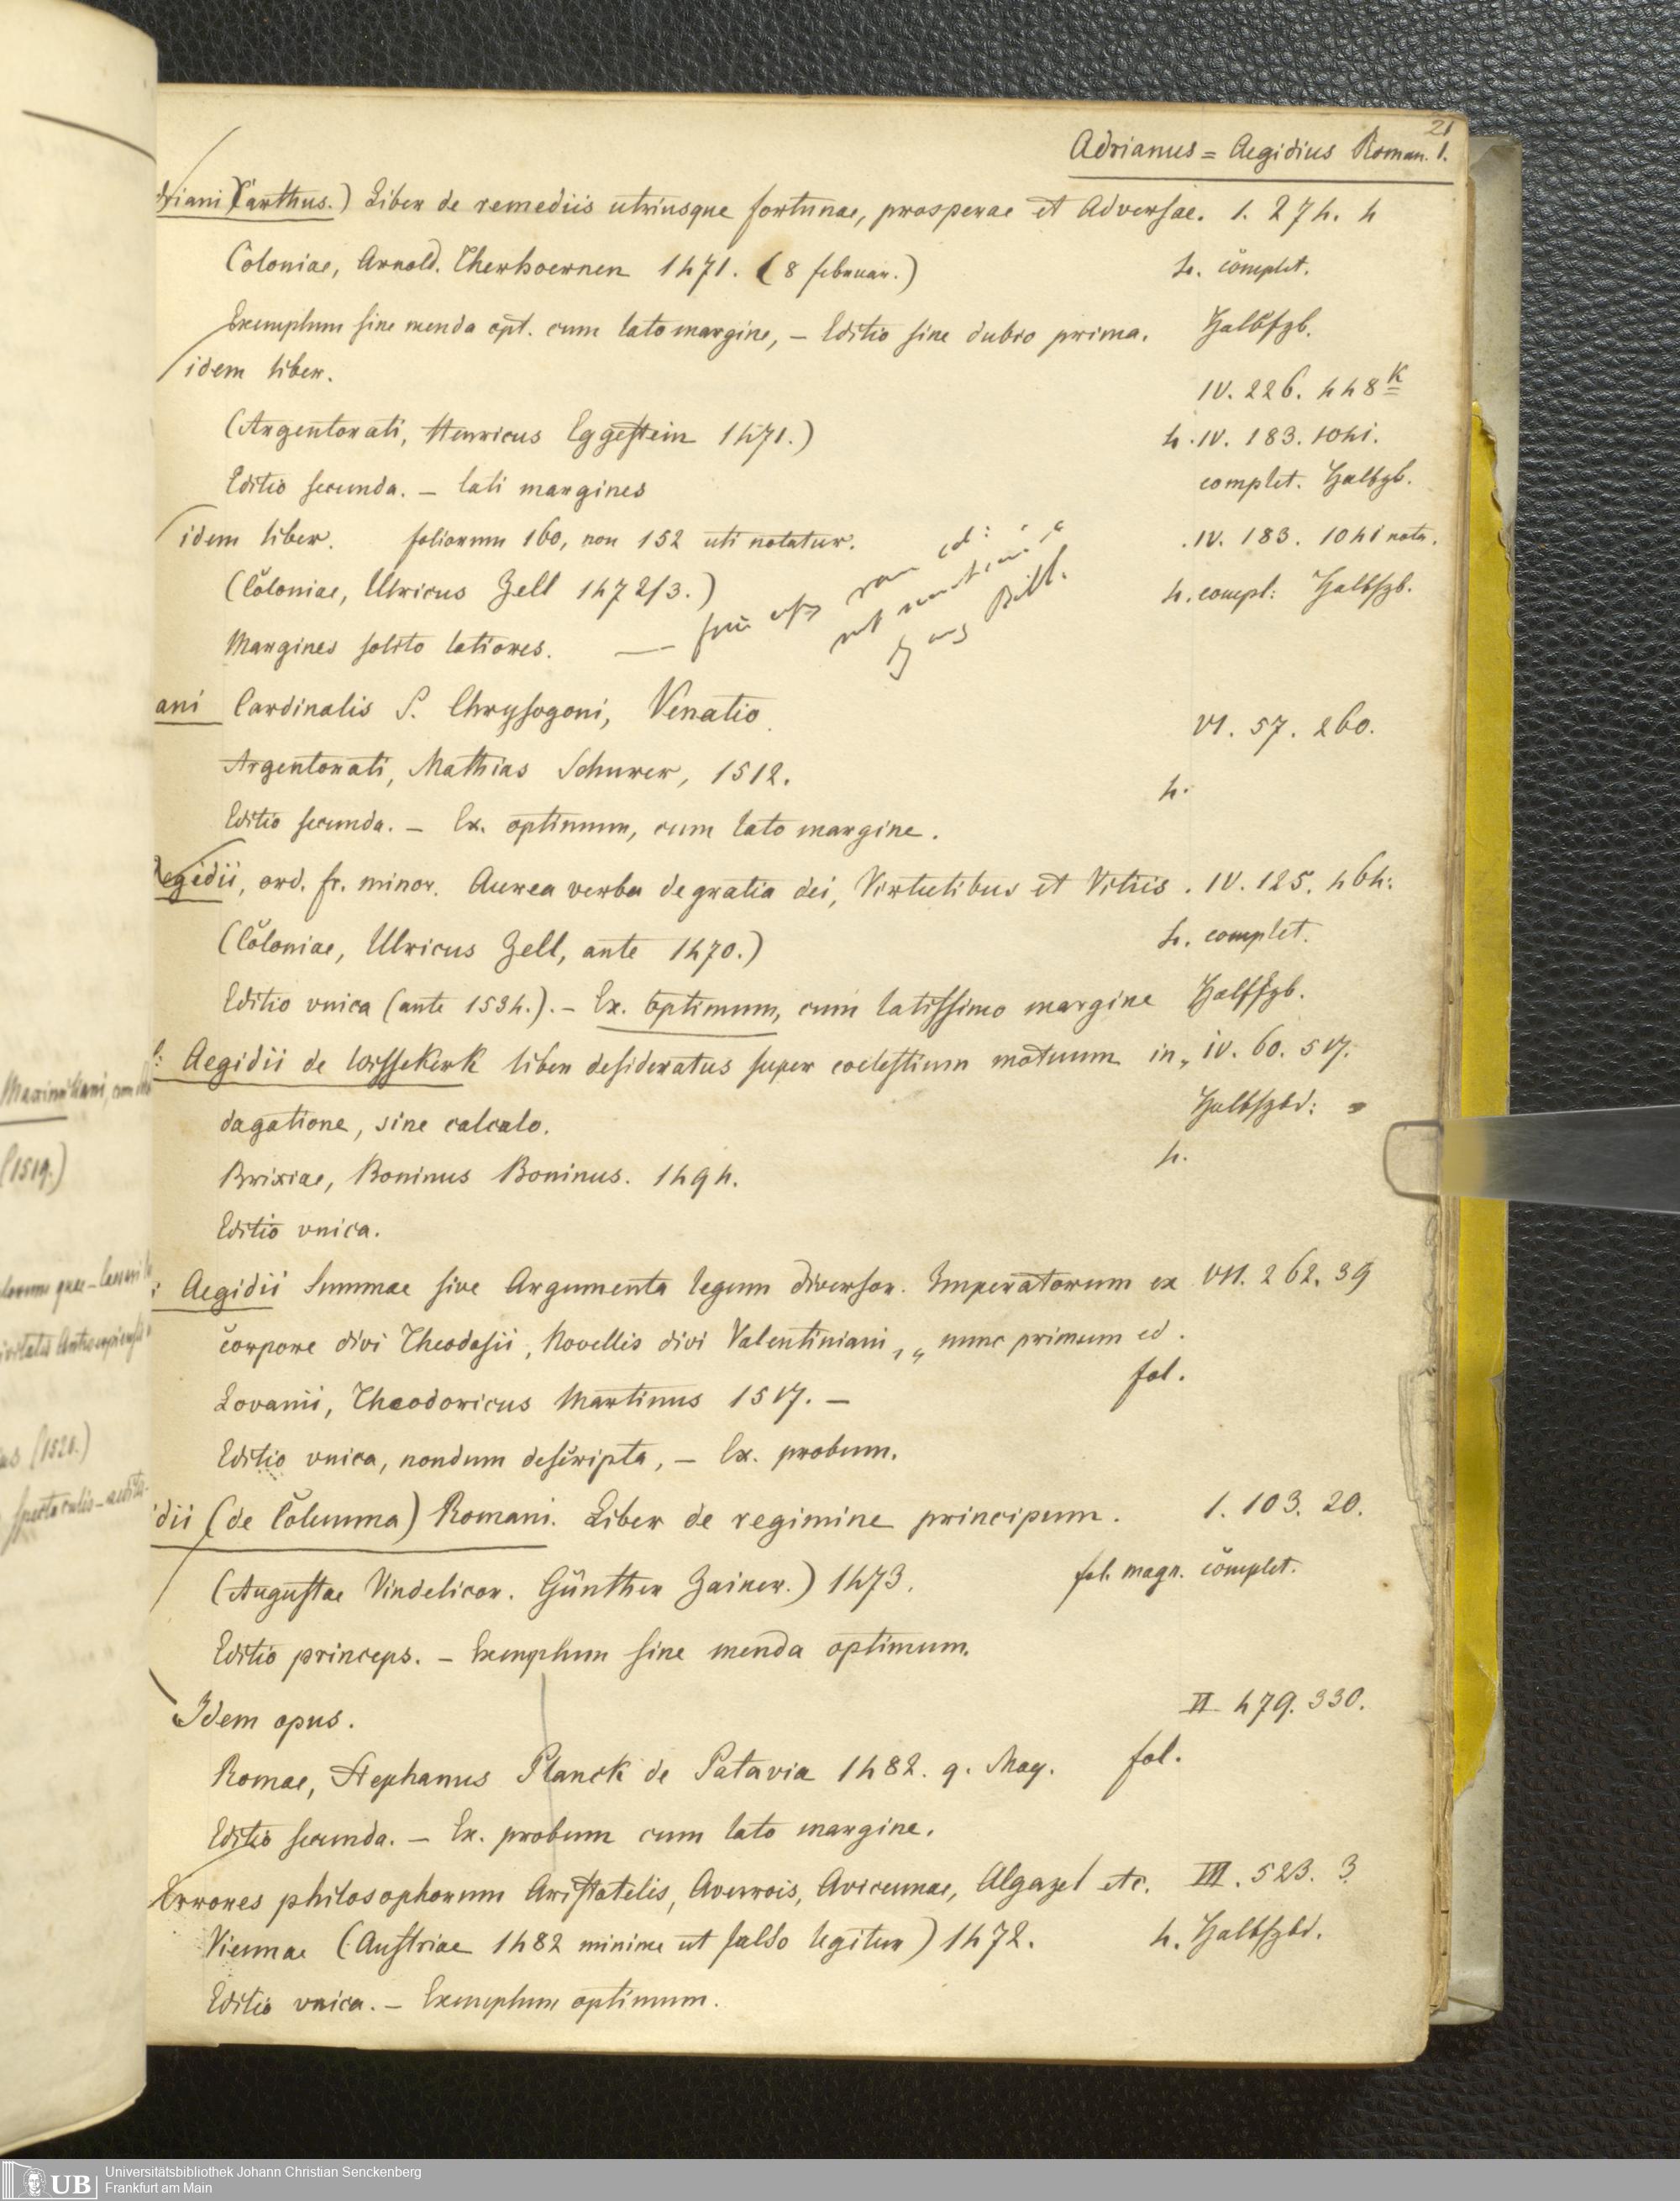 21
Adrianus = Aegidius Roman. 1.
driani (Carthus.) Liber de remediis utriusque fortunae, prosperae et Adversae. 1. 274. 4
Coloniae, Arnold. Therhoernen 1471. (8 februar.) 4. complet.
Exemplum sine menda opt. cum lato margine, – Editio sine dubio prima. Halbfzb.
idem liber. IV. 226. 448 K
(Argentorati, Henricus Eggestein 1471.) 4. IV. 183. 1041.
Editio secunda. – lati margines complet. Halbzb.
idem liber. foliorum 160, non 152 uti notatur. IV. 183. 1041 nota.
(Coloniae, Ulricus Zell 1472/3.) 4. compl: Halbfzb.
Margines solito latiores. —
ani Cardinalis S. Chrysogoni, Venatio. VI. 57. 260.
Argentorati, Mathias Schurer, 1512. 4.
Editio secunda. – Ex. optimum, cum lato margine.
Aegidii, ord. fr. minor. Aurea verba de gratia dei, Virtutibus et Vitiis. IV. 125. 464.
(Coloniae, Ulricus Zell, ante 1470.) 4. complet.
Editio vnica (ante 1534.). – Ex. optimum, cum latissimo margine Halbfzb.
Aegidii de Wissekerk liber desideratus super coelestium motuum in„ IV. 60. 517.
dagatione, sine calculo. Halbfzbd:
Brixiae, Boninus Boninus. 1494. 4.
Editio vnica.
Aegidii Summae sive Argumenta legum diversor. Imperatorum ex VII. 262. 39
corpore divi Theodosii, Novellis divi Valentiniani,„ nunc primum ed.
Lovanii, Theodoricus Martinus 1517. – fol.
Editio vnica, nondum descripta, – Ex. probum.
idii (de Columna) Romani. Liber de regimine principum. 1. 103. 20.
(Augustae Vindelicor. Günther Zainer.) 1473. fol. magn. complet.
Editio princeps. – Exemplum sine menda optimum.
Idem opus. II 479. 330.
Romae, Stephanus Planck de Patavia 1482. 9. May. fol.
Editio secunda. – Ex. probum cum lato margine.
Errores philosophorum Aristotelis, Averrois, Avicennae, Algazel etc. III. 523. 3.
Viennae (Austriae 1482 minime ut falso legitur) 1472. 4. Halbfzbd.
Editio vnica. – Exemplum optimum.
(1519.)
(1521.)
UB
Universitätsbibliothek Johann Christian Senckenberg
Frankfurt am Main